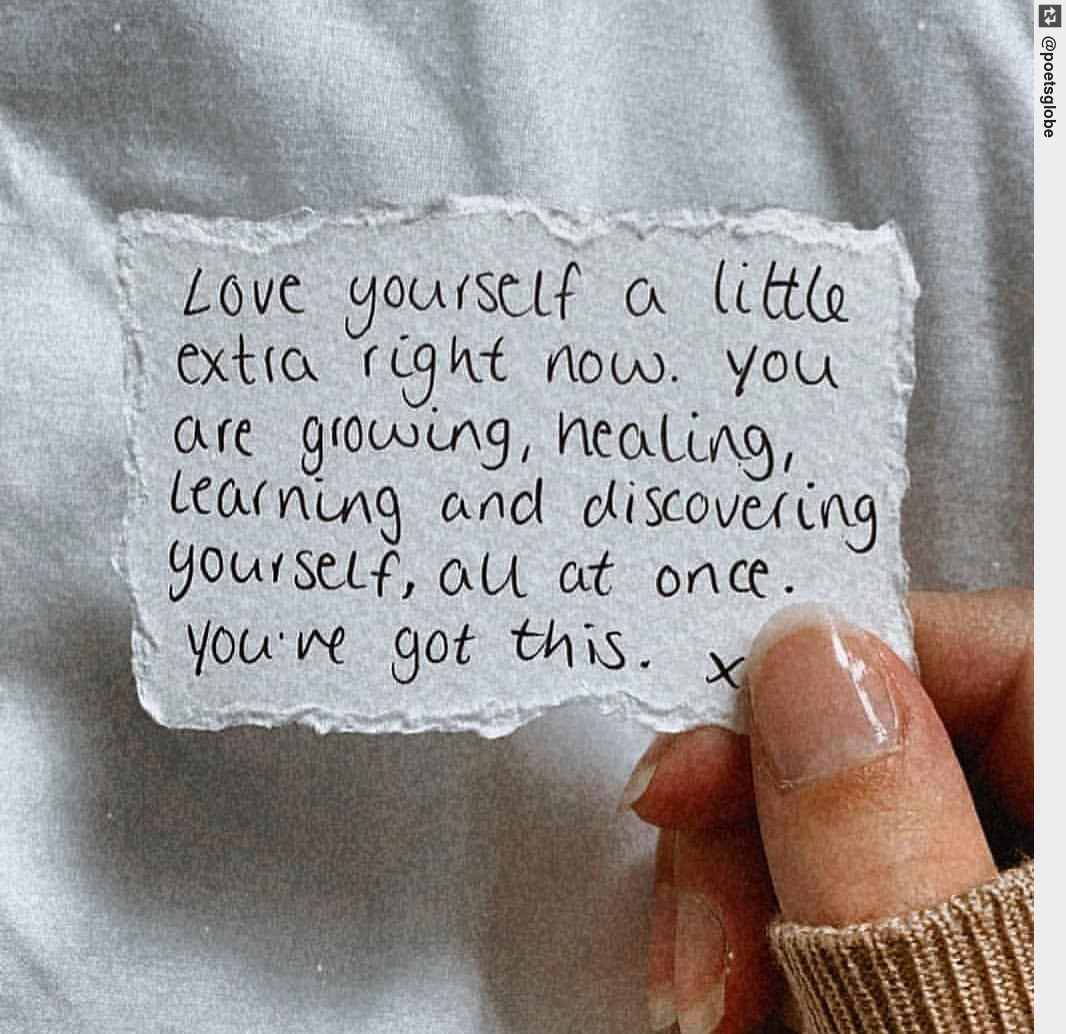 Love yourself a little
extra right now. you
are growing, healing,
learning and discovering
yourself, all at once.
you've got this. x
@poetsglobe